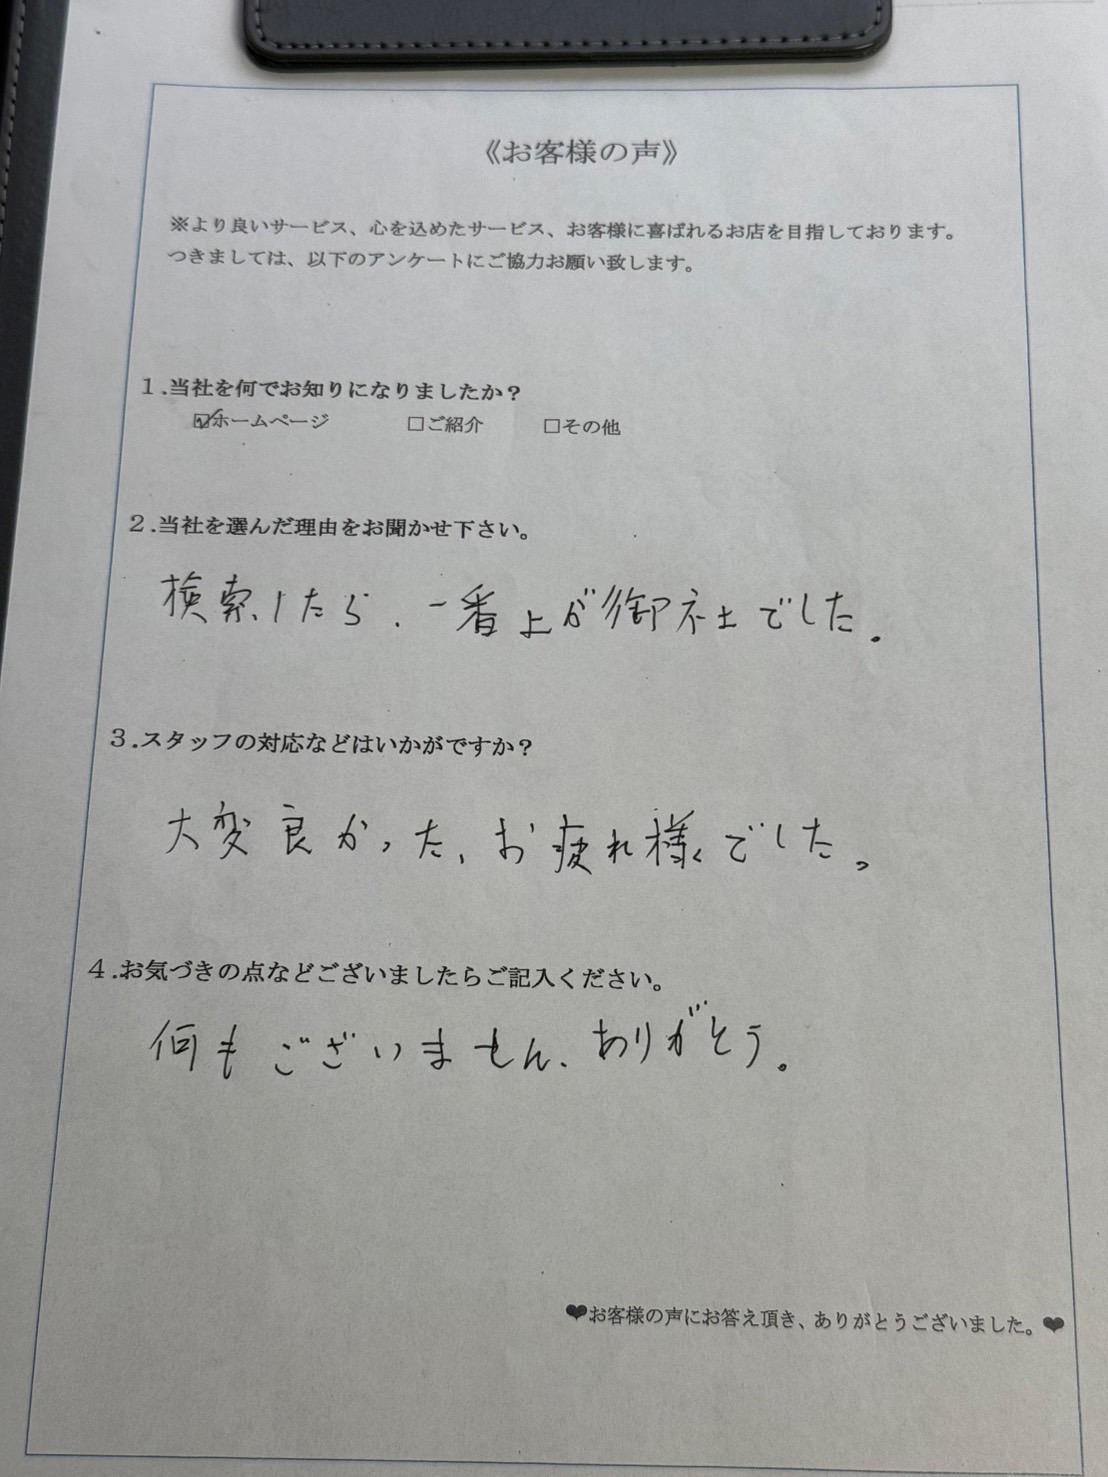 《お客様の声》
※より良いサービス、心を込めたサービス、お客様に喜ばれるお店を目指しております。
つきましては、以下のアンケートにご協力お願い致します。
1.当社を何でお知りになりましたか？
☑ホームページ □ご紹介 □その他
2.当社を選んだ理由をお聞かせ下さい。
検索したら、一番上が御社でした。
3.スタッフの対応などはいかがですか？
大変良かった、お疲れ様でした。
4.お気づきの点などございましたらご記入ください。
何もございません、ありがとう。
❤お客様の声にお答え頂き、ありがとうございました。❤